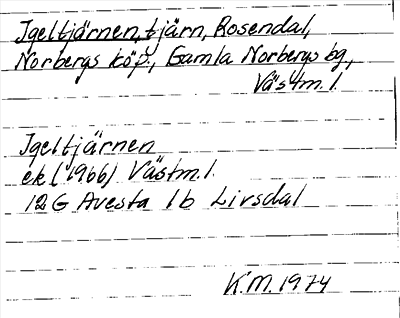 Igeltjärnen, tjärn, Rosendal,
Norbergs köp., Gamla Norbergs bg,
Västm.l.
Igeltjärnen
ek (1966) Västm.l.
12G Avesta 1b Livsdal
K.M. 1974